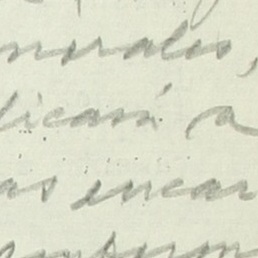 morales,
licará a
as encar